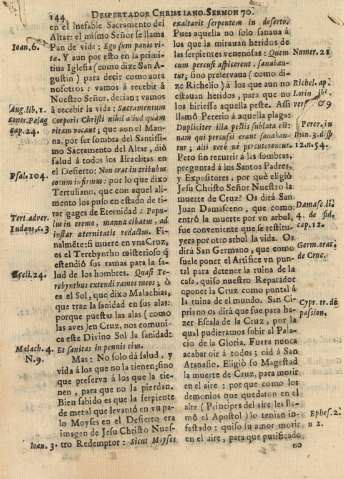 144 DESPERTADOR CHRISTIANO. SERMON 70.
en el Inefable Sacramento del
Altar: el mismo Señor se llama
Ioan. 6. Pan de vida: Ego sum panis vi-
tæ. Y aun por esto en la primi-
tiua Iglesia (como dize San A-
gustin) para dezir como aora
nosotros: vamos à recebir à
Nuestro Señor, dezian; vamos
Aug. lib. 1. à recebir la vida: Sacramentum
contr. Pelag. Corporis Christi nihil aliud quam
cap. 24. vitam vocant; que aun el Man-
na, por ser sombra del Santissi-
mo Sacramento del Altar, diò
salud à todos los Israelitas en
Psal. 104. el Desierto: Non erat in tribubus
eorum infirmus: por lo que dixo
Tertuliano, que con aquel ali-
mento los puso en estado de ti-
Tert. adver. tar gages de Eternidad: Popu-
Iudæos, c. 3 lus in eremo, manna cibatur, ad
instar æternitatis redactus. Fi-
nalmẽte: si muere en vna Croz,
es el Terebyntho misterioso q̃
estendiò sus ramas para la sa-
Eccli. 24. lud de los hombres. Quasi Te-
rebynthus extendi ramos meos; ò
es el Sol, que dixo Malachias,
que trae la sanidad en sus alas:
porque puestas las alas (como
las aves) en Cruz, nos comuni-
ca este Divino Sol la sanidad:
Malach. 4. Et sanitas in pennis eius.
N. 9. Mas: No solo dà salud, y
vida à los que no la tienen; sino
que preserva à los que la tie-
nen, para que no la pierdan.
Bien sabido es que la serpiente
de metal que levantò en vn pa-
lo Moyses en el Desierto era
imagen de Jesu Christo Nues-
Ioan. 3. tro Redemptor: Sicut Moyses
exaltavit serpentem in deserto.
Pues aquella no solo sanava à
los que la miravan heridos de
las serpientes venenosas: Quam Numer. 21
cum percussi aspicerent, sanaban-
tur; sino preservava (como di-
ze Richelio) à los que aun no
estavan heridos, para que no
los hiriesse aquella peste. Assi
llamò Pererio à aquella plaga:
Duplicitor illa pestis sublata est:
nam qui percussi erant sanaban-
tur; alij verò nè percuterentur. 12. n. 54.
Pero sin recurrir à las sombras,
preguntad à los Santos Padres,
y Expositores, por què eligiò
Jesu Christo Señor Nuestro la
muerte de Cruz? Os dirà San
Juan Damasceno, que como Damasc. li.
entrò la muerte por vn arbol, 4. de fid,
fue conveniente que se restitu- cap. 12.
yera por otro arbol la vida. Os
dirà San Germano, que como
suele poner el Artifice vn pun- de Cruc.
tal para detener la ruina de la
casa, quiso nuestro Reparador
oponer la Cruz como puntal à
la ruina de el mundo. San Ci-
priano os dirà que fue para ha-
zer Escala de la Cruz, por la
qual pudieramos subir al Pala-
cio de la Gloria. Fuera nunca
acabar oir à todos; oid à San
Atanasio. Eligiò su Magestad
la muerte de Cruz, para morir
en el aire: por que como los
demonios que quedaron en el
aire (Principes del aire, les lla-
mò el Apostol) lo tenian in- Ephes. 2.
festado; quiso su amor morir
en el aire, para que purificado
no